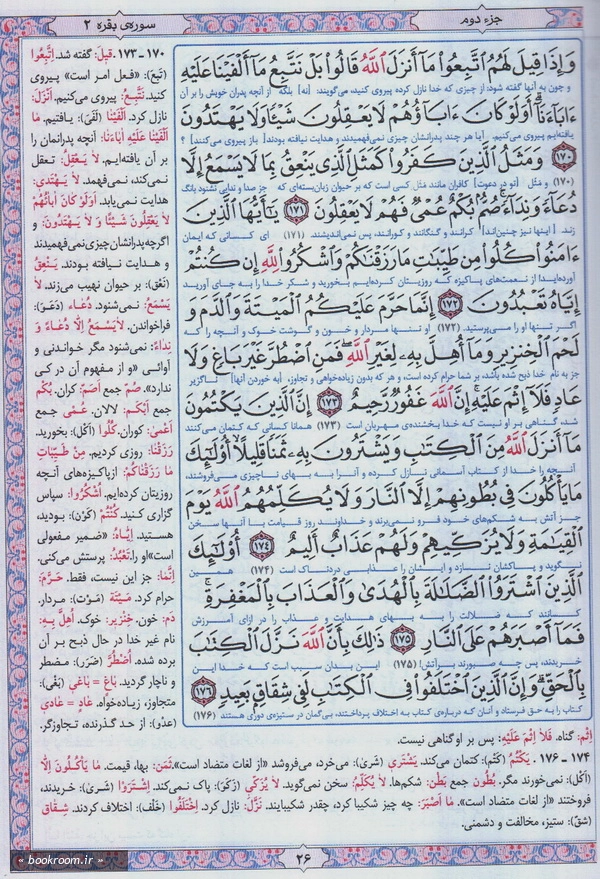 جزء دوم
سوره‌ی بقره ۲
وَإِذَا قِيلَ لَهُمُ ٱتَّبِعُوا۟ مَآ أَنزَلَ ٱللَّهُ قَالُوا۟ بَلْ نَتَّبِعُ مَآ أَلْفَيْنَا عَلَيْهِ
و چون به آنها گفته شود: از چیزی که خدا نازل کرده پیروی کنید، می‌گویند: [نه] بلکه از آنچه پدران خویش را بر آن
ءَابَآءَنَآ ۗ أَوَلَوْ كَانَ ءَابَآؤُهُمْ لَا يَعْقِلُونَ شَيْـًٔا وَلَا يَهْتَدُونَ
یافته‌ایم پیروی می‌کنیم. آیا هر چند پدرانشان چیزی نمی‌فهمیدند و هدایت نیافته بودند [باز پیروی می‌کنند] ؟
۱۷۰ وَمَثَلُ ٱلَّذِينَ كَفَرُوا۟ كَمَثَلِ ٱلَّذِى يَنْعِقُ بِمَا لَا يَسْمَعُ إِلَّا
(۱۷۰) و مثل [تو در دعوت] کافران مانند مثل کسی است که بر حیوان زبان‌بسته‌ای که جز صدا و ندایی نشنود بانگ
دُعَآءً وَنِدَآءً ۚ صُمٌّۢ بُكْمٌ عُمْىٌ فَهُمْ لَا يَعْقِلُونَ ۱۷۱ يَـٰٓأَيُّهَا ٱلَّذِينَ
زند. [اینها نیز چنین‌اند] کرانند و گنگانند و کورانند، پس نمی‌اندیشند (۱۷۱) ای کسانی که ایمان
ءَامَنُوا۟ كُلُوا۟ مِن طَيِّبَـٰتِ مَا رَزَقْنَـٰكُمْ وَٱشْكُرُوا۟ لِلَّهِ إِن كُنتُمْ
آورده‌اید! از نعمت‌های پاکیزه که روزیتان کرده‌ایم بخورید و شکر خدا را به جای آورید
إِيَّاهُ تَعْبُدُونَ ۱۷۲ إِنَّمَا حَرَّمَ عَلَيْكُمُ ٱلْمَيْتَةَ وَٱلدَّمَ وَ
اگر تنها او را می‌پرستید (۱۷۲) او تنها مردار و خون و گوشت خوک و آنچه را که
لَحْمَ ٱلْخِنزِيرِ وَمَآ أُهِلَّ بِهِۦ لِغَيْرِ ٱللَّهِ ۖ فَمَنِ ٱضْطُرَّ غَيْرَ بَاغٍ وَلَا
جز به نام خدا ذبح شده باشد، بر شما حرام کرده است، و هر که بدون زیاده‌خواهی و تجاوز، [به خوردن آنها] ناگزیر
عَادٍ فَلَآ إِثْمَ عَلَيْهِ ۚ إِنَّ ٱللَّهَ غَفُورٌ رَّحِيمٌ ۱۷۳ إِنَّ ٱلَّذِينَ يَكْتُمُونَ
شد، گناهی بر او نیست که خدا بخشنده‌ی مهربان است (۱۷۳) همانا کسانی که کتمان می‌کنند
مَآ أَنزَلَ ٱللَّهُ مِنَ ٱلْكِتَـٰبِ وَيَشْتَرُونَ بِهِۦ ثَمَنًا قَلِيلًا ۙ أُو۟لَـٰٓئِكَ
آنچه را خدا از کتاب آسمانی نازل کرده و آن‌را به بهای ناچیزی می‌فروشند،
مَا يَأْكُلُونَ فِى بُطُونِهِمْ إِلَّا ٱلنَّارَ وَلَا يُكَلِّمُهُمُ ٱللَّهُ يَوْمَ
جز آتش به شکم‌های خود فرو نمی‌برند و خداوند روز قیامت با آنها سخن
ٱلْقِيَـٰمَةِ وَلَا يُزَكِّيهِمْ وَلَهُمْ عَذَابٌ أَلِيمٌ ۱۷۴ أُو۟لَـٰٓئِكَ
نگوید و پاکشان نسازد و ایشان را عذابی دردناک است (۱۷۴) همین
ٱلَّذِينَ ٱشْتَرَوُا۟ ٱلضَّلَـٰلَةَ بِٱلْهُدَىٰ وَٱلْعَذَابَ بِٱلْمَغْفِرَةِ ۚ
کسانند که ضلالت را به بهای هدایت و عذاب را در ازای آمرزش
فَمَآ أَصْبَرَهُمْ عَلَى ٱلنَّارِ ۱۷۵ ذَٰلِكَ بِأَنَّ ٱللَّهَ نَزَّلَ ٱلْكِتَـٰبَ
خریدند، پس چه صبورند بر آتش! (۱۷۵) این بدان سبب است که خدا این
بِٱلْحَقِّ ۗ وَإِنَّ ٱلَّذِينَ ٱخْتَلَفُوا۟ فِى ٱلْكِتَـٰبِ لَفِى شِقَاقٍۭ بَعِيدٍ ۱۷۶
کتاب را به حق فرستاد و آنان که درباره‌ی کتاب به اختلاف پرداختند، بی‌گمان در ستیزه‌ی دوری هستند (۱۷۶)
۱۷۰ - ۱۷۳. قیلَ: گفته شد. اِتَّبِعُوا
(تَبِعَ): «فعل امر است» پیروی
کنید. نَتَّبِعُ: پیروی می‌کنیم. أَنْزَلَ:
نازل کرد. أَلْفَیْنَا (لَفَیَ): یافتیم. مَا
أَلْفَیْنَا عَلَیْهِ أٰبَاءَنَا: آنچه پدرانمان را
بر آن یافته‌ایم. لَا یَعْقِلُ: تعقل
نمی‌کند، نمی‌فهمد. لَا یَهْتَدی:
هدایت نمی‌یابد. أَوَلَوْ کَانَ أٰبَاؤُهُمْ
لَا یَعْقِلُونَ شَیْئًا وَ لَا یَهْتَدُونَ: و
اگرچه پدرانشان چیزی نمی‌فهمیدند
و هدایت نیافته بودند. یَنْعِقُ
(نَعَقَ): بر حیوان نهیب می‌زند. لَا
یَسْمَعُ: نمی‌شنود. دُعَاء (دَعَوَ):
فراخواندن. لَا یَسْمَعُ إِلَّا دُعَاءً وَ
نِدَاءً: نمی‌شنود مگر خواندنی و
آوائی «و از مفهوم آن درکی
ندارد». صُمّ جمع أَصَمّ: کران. بُکْم
جمع أَبْکَم: لالان. عُمْی جمع
أَعْمَی: کوران. کُلُوا (أَکَلَ): بخورید.
رَزَقْنَا: روزی کردیم. مِنْ طَیِّبَاتِ
مَا رَزَقْنَاکُمْ: ازپاکیزه‌های آنچه
روزیتان کرده‌ایم. اُشْکُرُوا: سپاس
گزاری کنید. کُنْتُمْ (کَوَنَ): بودید،
هستید. إِیَّاهُ: «ضمیر مفعولی
است» او را. تَعْبُدُ: پرستش می‌کنی.
إِنَّمَا: جز این نیست، فقط. حَرَّمَ:
حرام کرد. مَیْتَة (مَوَتَ): مردار.
دَم: خون. خِنْزیر: خوک. أُهِلَّ بِهِ:
نام غیر خدا در حال ذبح بر آن
برده شده. اُضْطُرَّ (ضَرَّ): مضطر
و ناچار گردید. بَاغٍ = بَاغی (بَغَیَ):
متجاوز، زیاده‌خواه. عَادٍ = عَادی
(عَدَوَ): از حد گذرنده، تجاوزگر.
إِثْم: گناه. فَلَا إِثْمَ عَلَیْهِ: پس بر او گناهی نیست.
۱۷۴ - ۱۷۶. یَکْتُمُ (کَتَمَ): کتمان می‌کند. یَشْتَری (شَرَیَ): می‌خرد، می‌فروشد «از لغات متضاد است». ثَمَن: بها، قیمت. مَا یَأْکُلُونَ إِلَّا
(أَکَلَ): نمی‌خورند مگر. بُطُون جمع بَطْن: شکم‌ها. لَا یُکَلِّمُ: سخن نمی‌گوید. لَا یُزَکِّی (زَکَوَ): پاک نمی‌کند. اِشْتَرَوُا (شَرَیَ): خریدند،
فروختند «از لغات متضاد است». مَا أَصْبَرَ: چه چیز شکیبا کرد، چقدر شکیبایند. نَزَّلَ: نازل کرد. اِخْتَلَفُوا (خَلَفَ): اختلاف کردند. شِقَاق
(شَقَّ): ستیز، مخالفت و دشمنی.
۲۶
« bookroom.ir »